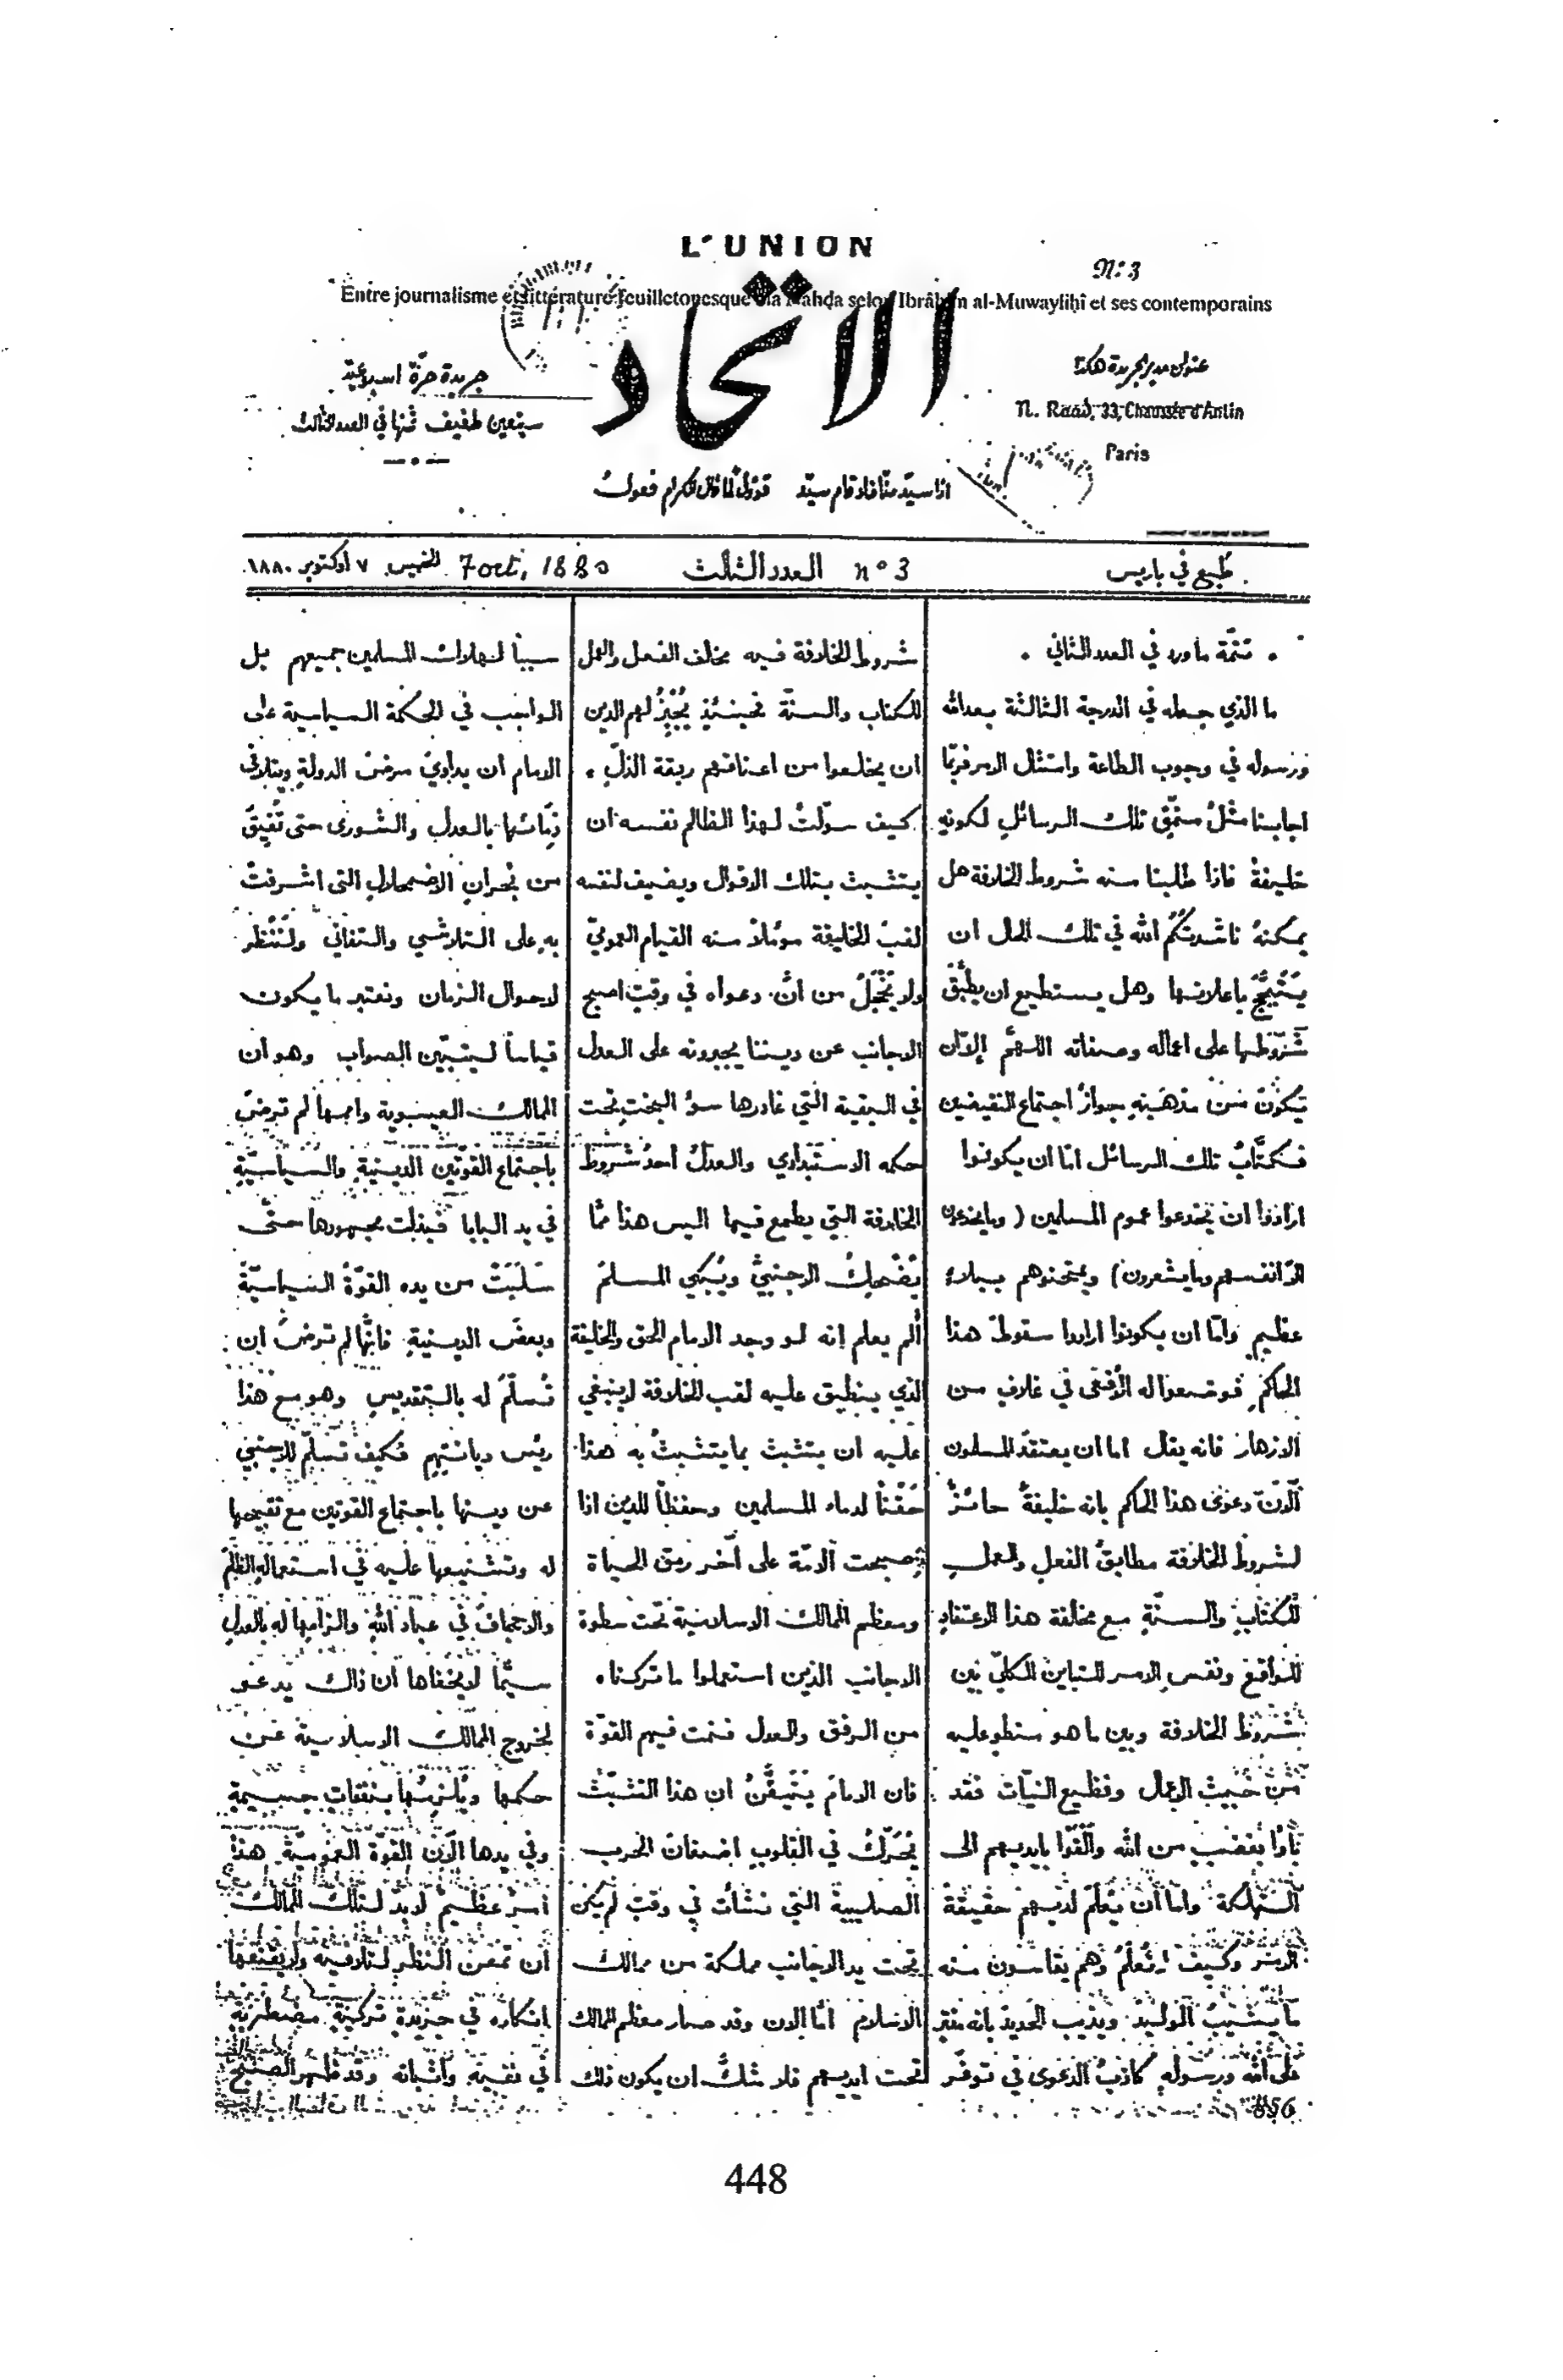 L'UNION
N: 3
Entre journalisme et littérature feuilletonesque : la Nahḍa selon Ibrâhîm al-Muwayliḥî et ses contemporains
الاتحاد
عنوان مدير الجريدة هكذا
N. Raad, 33, Chaussée d'Antin
Paris
جريدة حرّة اسبوعية
سيتعين طفيف ثمنها في العدد الثالث
اذا سيّد منّا خلا قام سيّد قؤول لما قال الكرام فعول
طبع في باريس
العدد الثالث n° 3
7 oct, 1880 الخميس ٧ أكتوبر ١٨٨٠
. تتمّة ما ورد في العدد الثاني .
ما الذي جعله في الدرجة الثالثة بعد الله
ورسوله في وجوب الطاعة وامتثال الامر فربّما
اجابنا مثل منمّق تلك الرسائل لكونه
خليفة فاذا طلبنا منه شروط الخلافة هل
يمكنه ناشدتكم الله في تلك الحال ان
باعلانها وهل يستطيع ان يطبّق
شروطها على اعماله وصفاته اللهمّ إلا ان
يكون من مذهبه جواز اجتماع النقيضين
فكتّاب تلك الرسائل امّا ان يكونوا
ارادوا ان يخدعوا عموم المسلمين (وما يخدعون
الا انفسهم وما يشعرون) ويمتحنوهم ببلاء
عظيم وامّا ان يكونوا ارادوا سقوط هذا
الحاكم فوضعوا له الأفعى في غلاف من
الازهار فانه يقال اما ان يعتقد المسلمون
الآن دعوى هذا الحاكم بانه خليفة حائز
لشروط الخلافة مطابق الفعل والعمل
للكتاب والسنّة مع مخالفة هذا الاعتقاد
للواقع ونفس الامر للتباين الكليّ بين
شروط الخلافة وبين ما هو منطو عليه
من خبيث الاعمال وفظيع النيّات فقد
باؤا بغضب من الله وألقوا بايديهم الى
التهلكة وامّا أن يُعلم لديهم حقيقة
الامر وكيف لا تُعلم وهم يقاسون منه
ما يشيب الوليد ويذيب الحديد بانه مفتر
على الله ورسوله كاذب الدعوى في توفّر
شروط الخلافة فيه مخالف الفعل والعمل
للكتاب والسنّة فحينئذ يُجيز لهم الدين
ان يخلعوا من اعناقهم ربقة الذلّ .
كيف سوّلت لهذا الظالم نفسه ان
يتشبث بتلك الاقوال ويضيف لنفسه
لقب الخليفة مؤملا منه القيام العموميّ
ولا يخجل من انّ دعواه في وقت اصبح
الاجانب عن ديننا يجبرونه على العدل
في البقية التي غادرها سوء البخت تحت
حكمه الاستبدادي والعدل أحد شروط
الخلافة التي يطمع فيها اليس هذا ممّا
يُضحك الاجنبيّ ويُبكي المسلم
ألم يعلم انه لو وجد الامام الحق والخليفة
الذي ينطبق عليه لقب الخلافة لا ينبغي
عليه ان يتشبث بما يتشبث به هذا
حقنا لدماء المسلمين وحفظا للدين اذا
اصبحت الامّة على آخر رمق الحياة
ومعظم الممالك الاسلامية تحت سطوة
الاجانب الذين استعملوا ما تركناه
من الرفق والعدل فنمت فيهم القوّة
فان الامام يتيقّن ان هذا التشبّث
يُحرّك في القلوب اضغان الحرب
الصليبية التي نشأت في وقت لم يكن
تحت يد الاجانب مملكة من ممالك
الاسلام امّا الان وقد صار معظم الممالك
تحت ايديهم فلا شكّ ان يكون ذلك
سببا لهلاك المسلمين جميعهم بل
الواجب في الحكمة السياسية على
الامام أن يداوي مرض الدولة ويتلافى
بالعدل والشورى حتى تُفيق
من بُحران الاضمحلال التي اشرفت
به على التلاشي والتفاني ولتنظر
لاحوال الزمان ونعتبر ما يكون
قياسا ليتبيّن الصواب وهو ان
الممالك العيسوية وامها لم ترض
باجتماع القوتين الدينية والسياسيّة
في يد البابا فبذلت مجهودها حتّى
سلبت من يده القوّة السياسيّة
وبعض الدينية فانّها لم ترض ان
تُسلّم له بالتقديس وهو مع هذا
رئيس ديانتهم فكيف تسلّم للاجنبي
عن دينها باجتماع القوتين مع تقبيحها
له وتشنيعها عليه في استعماله الظلم
والاجحاف في عباد الله والزامها له بالعدل
سيّما لا يخفاها ان ذاك يدعو
لخروج الممالك الاسلامية عن
حكمها ويُلزمها بنفقات جسيمة
وفي يدها الآن القوّة العموميّة هذا
امر عظيم لا بدّ لتلك الممالك
أن تمعن النظر لتلافيه ولا يقنعها
انكاره في جريدة تركية مضطربة
في نفيه واثباته وقد ظهر الصبح
856
448